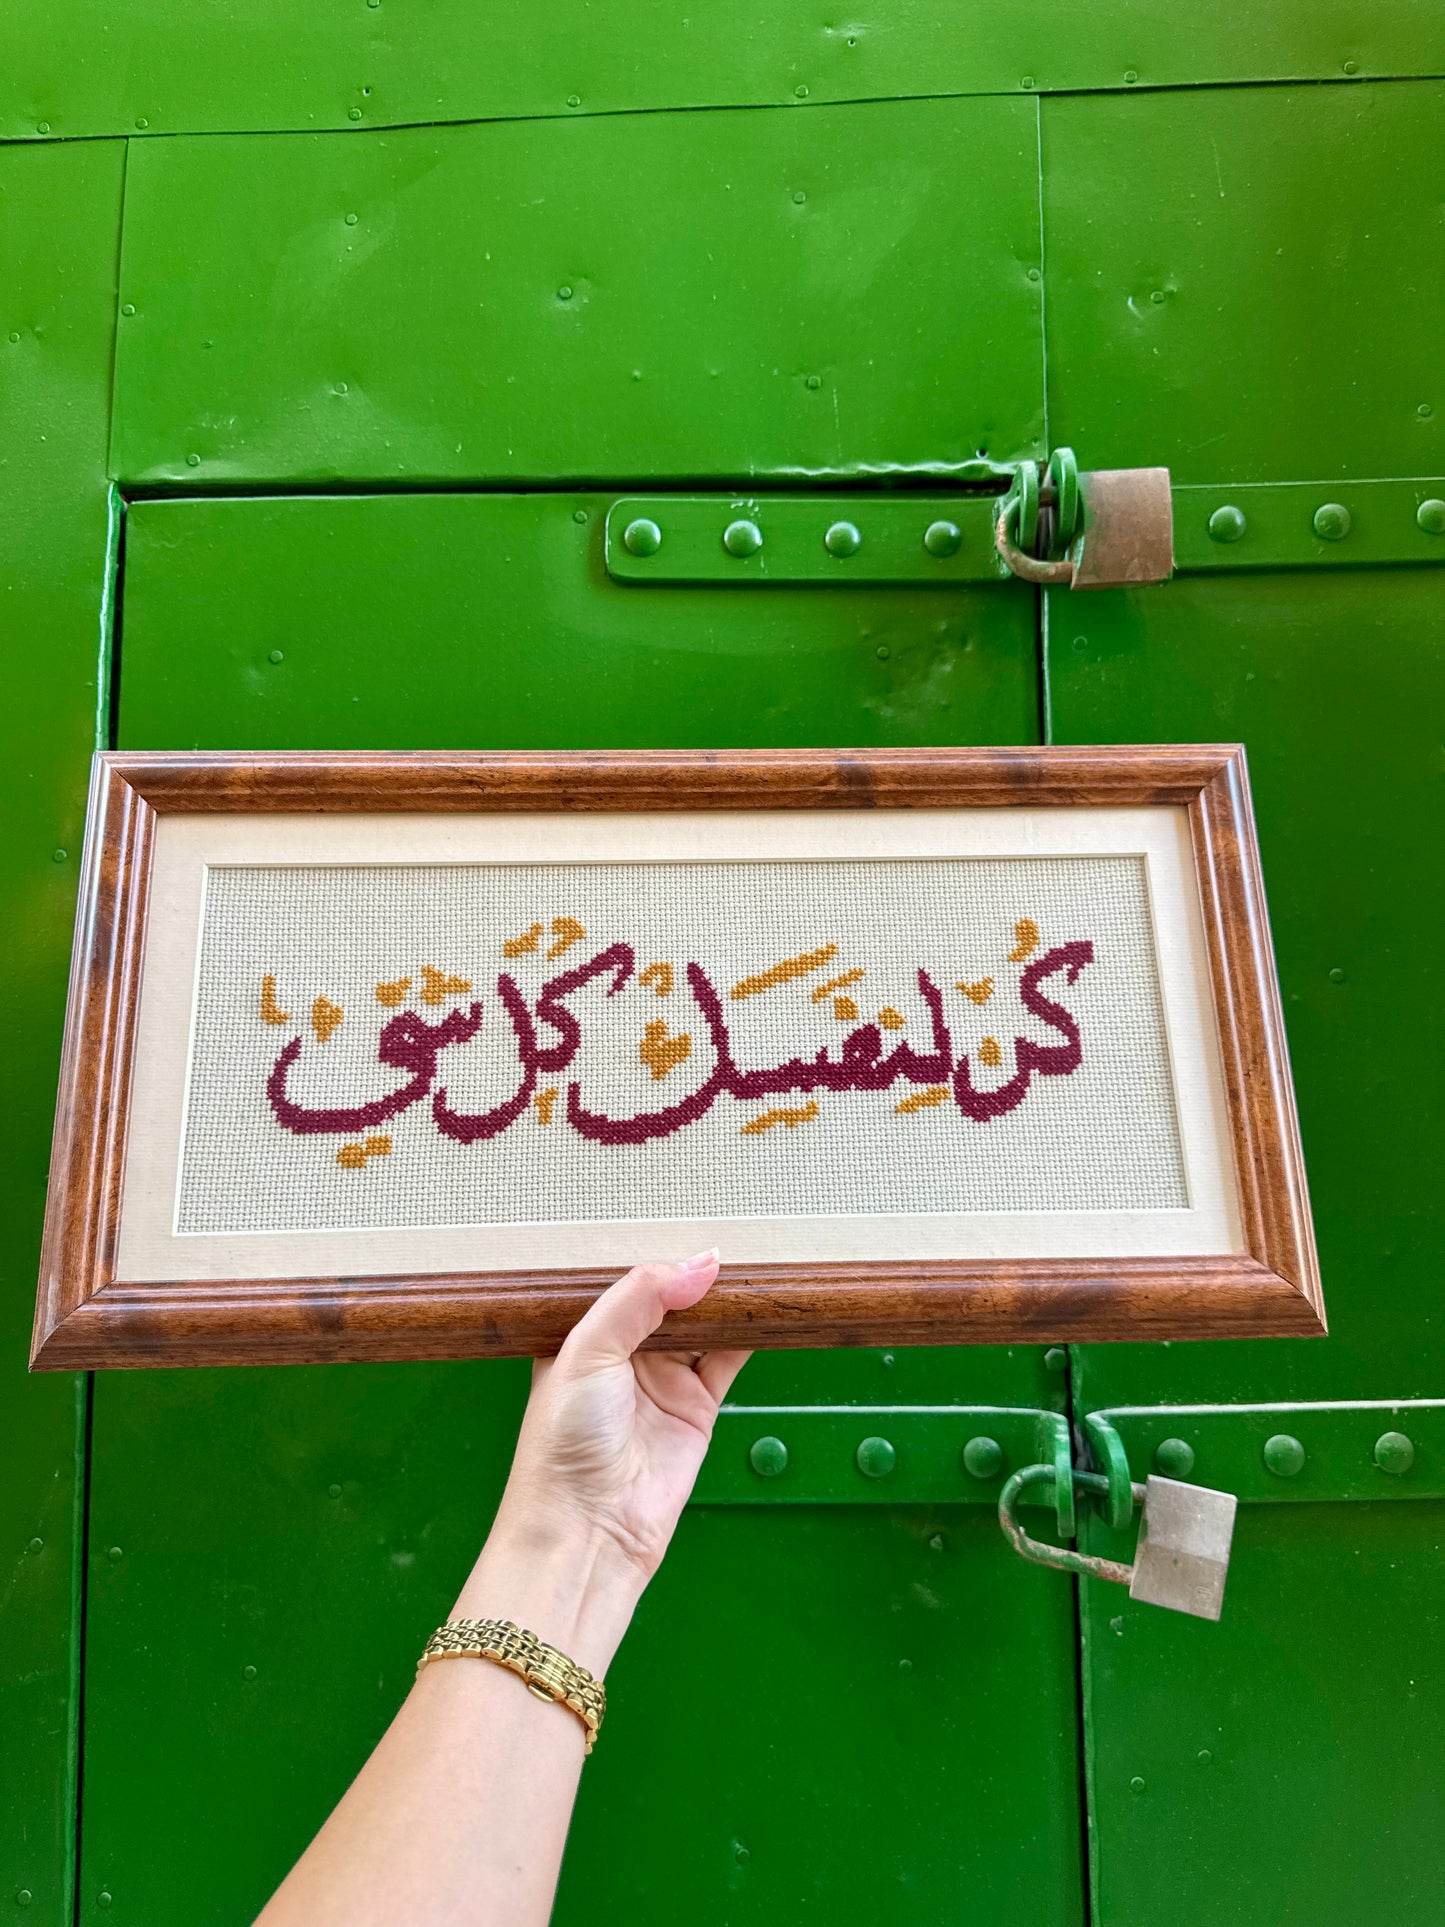 كُنْ لِنَفْسِكَ كُلَّ شَيْءٍ